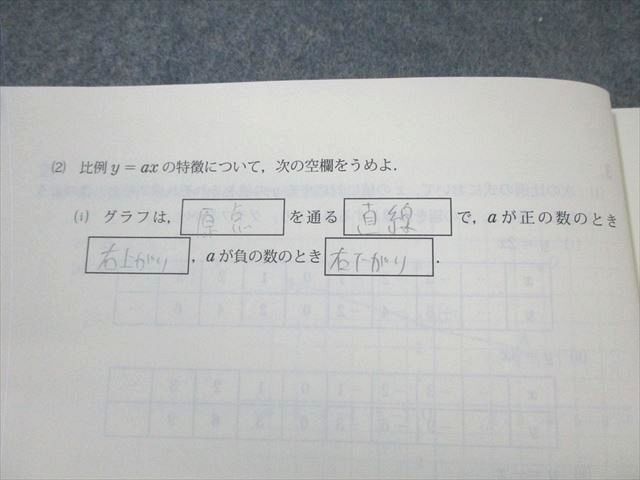 (2) 比例 y = ax の特徴について，次の空欄をうめよ．
(i) グラフは， 原点 を通る 直線 で，a が正の数のとき
右上がり ，a が負の数のとき 右下がり ．